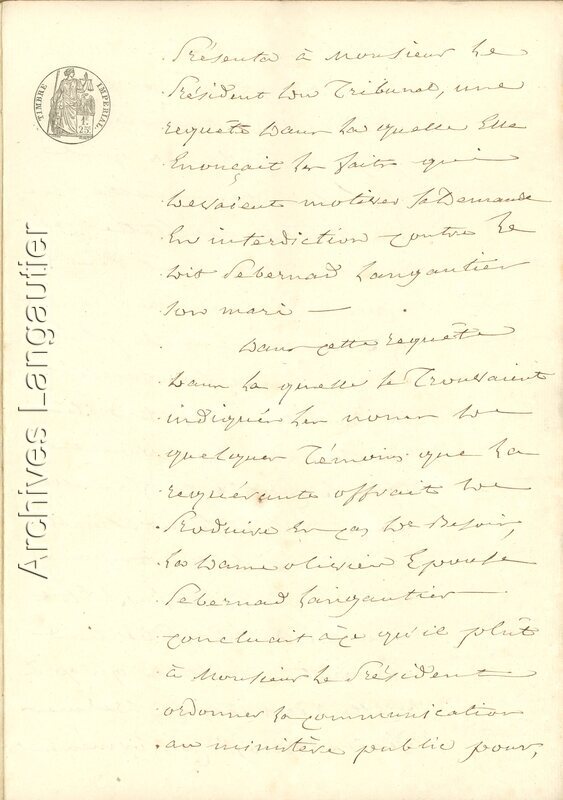 TIMBRE IMPERIAL
Archives Langautier
Présenta à Monsieur Le
Président du Tribunal, une
requête dans la quelle Elle
Enonçait les faits qui
devaient motiver sa Demande
En interdiction contre Le
dit Sebernad Langautier
son mari —
Dans cette requête
dans la quelle se Trouvaient
indiqués les noms de
quelques Témoins que la
requérante offrait de
Produire En cas de Besoin,
La Dame olivier Epouse
Sebernad Langautier
concluait à ce qu'il plût
à Monsieur Le Président
ordonner la communication
au ministère public pour,